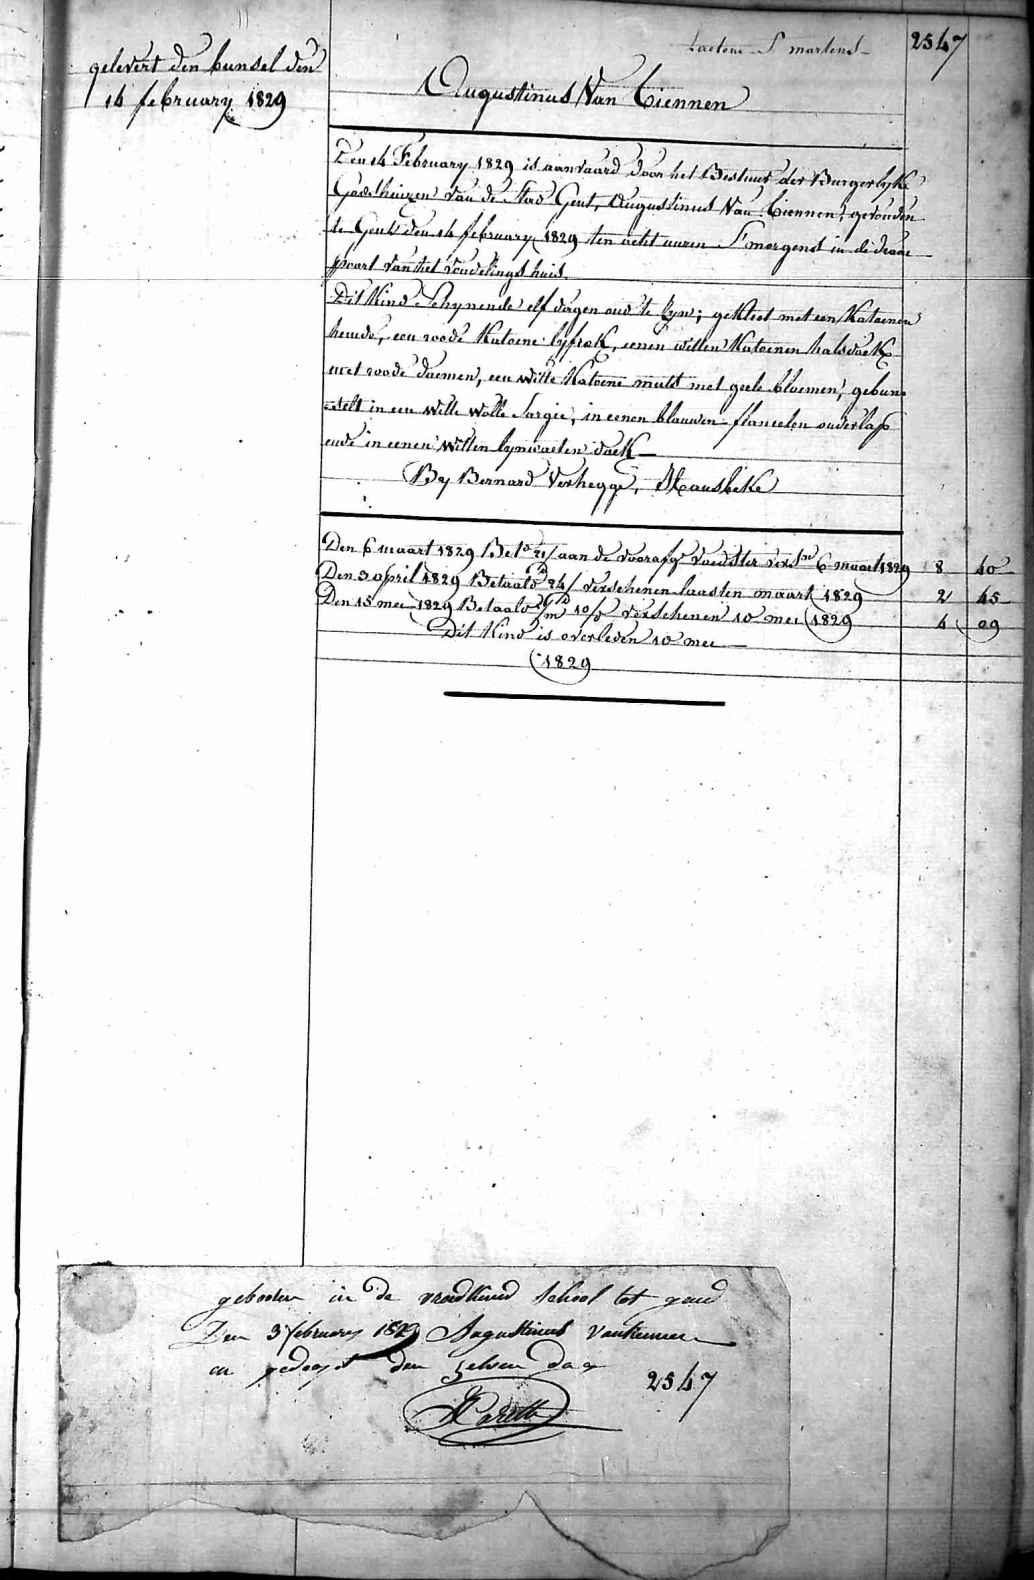 2547
Laetone St martens
gelevert den bunsel den
14 february 1829
Augustinus Van Tiennen
Den 14 February 1829 is aanvaard door het Bestuur der Burgerlyke
Godshuizen van de Stad Gent, Augustinus Van Tiennen, gevonden
te Gent den 14 february 1829 ten acht uuren S'morgens in de draae
poort van het vondelings huis.
Dit Kind Schynende elf dagen oud te zyn; gekleet met een Katoenen
hemde, een roode Katoene lyfrok, eenen witten Katoenen halsdoek
met roode doemen, een witte Katoene muts met geele bloemen, gebun-
selt in een witte wolle Sargie, in eenen blauwen flanelen onderlap
ende in eenen witten lynwaeten doek
By Bernard Verhegge, Hausbeke
Den 6 maart 1829 Bet. 21/ aan de voorafg. voedster vers. 6 maart 1829 8 40
Den 30 april 1829 Betaald 24/ verschenen laasten maart 1829 2 45
Den 15 mei 1829 Betaald 10/ verschenen 10 mei 1829 4 09
Dit Kind is overleden 10 mei
1829
gebooren in de vroedkund School tot gend
Den 3 february 1829 Augustinus Vantiennen
en gedoopt den zelven dag
2547